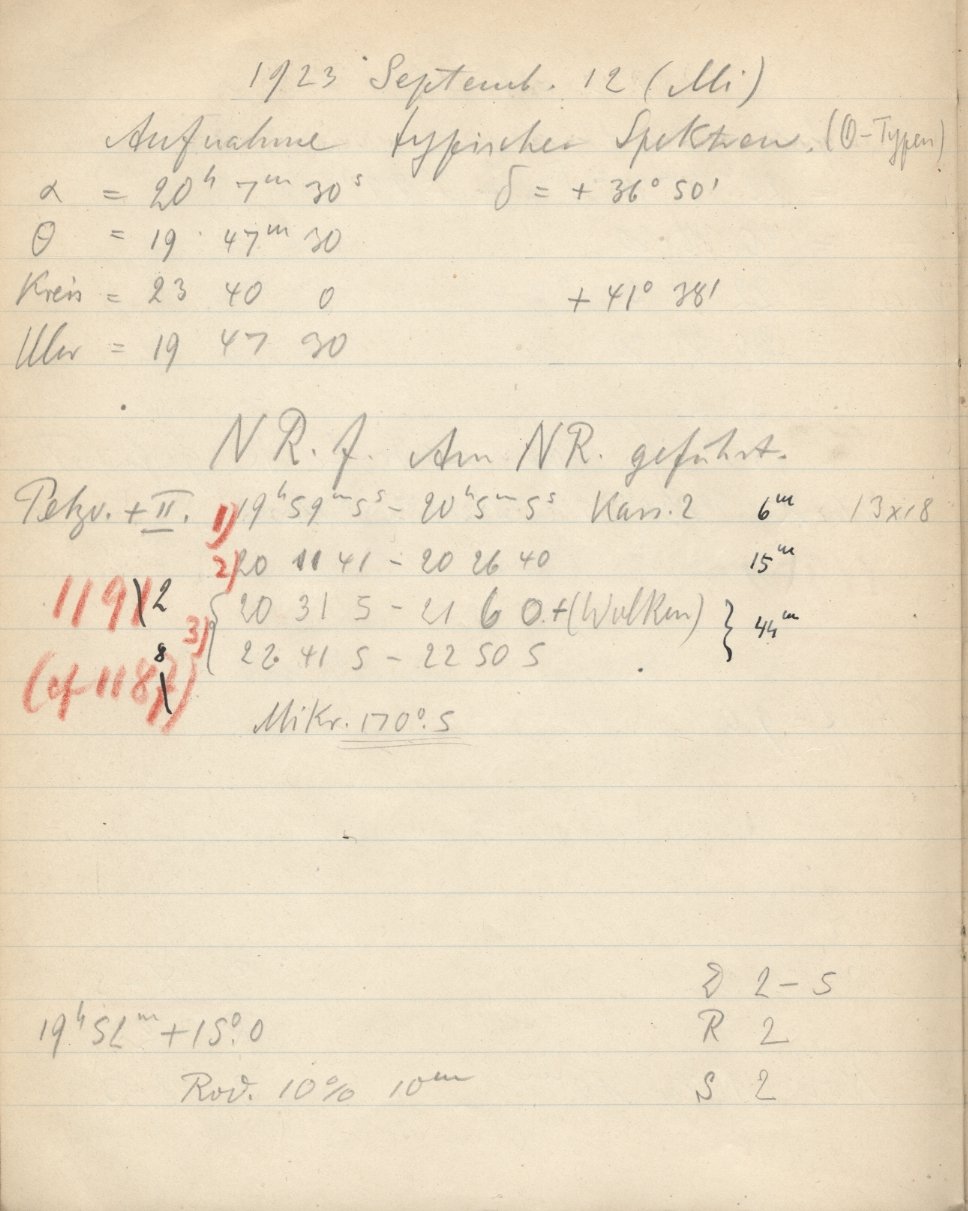 1923 Septemb. 12 (Mi)
Aufnahme typischer Spektren. (O-Typen)
α = 20ʰ 7ᵐ 30ˢ δ = + 36° 50'
θ = 19 47ᵐ 30
Kreis = 23 40 0 + 41° 38'
Uhr = 19 47 30
NR. f. Am NR. geführt.
Petzv. + II. 1) 19ʰ 59ᵐ 5ˢ - 20ʰ 5ᵐ 5ˢ Kass. 2 6ᵐ 13x18
2) 20 11 41 - 20 26 40 15ᵐ
1191 2 3) { 20 31 5 - 21 6 0 + (Wolken) } 44ᵐ
8 22 41 5 - 22 50 5
(cf 1187)
Mikr. 170°.5
2 - 5
19ʰ 52ᵐ + 15°.0 R 2
Rod. 10% 10ᵐ S 2